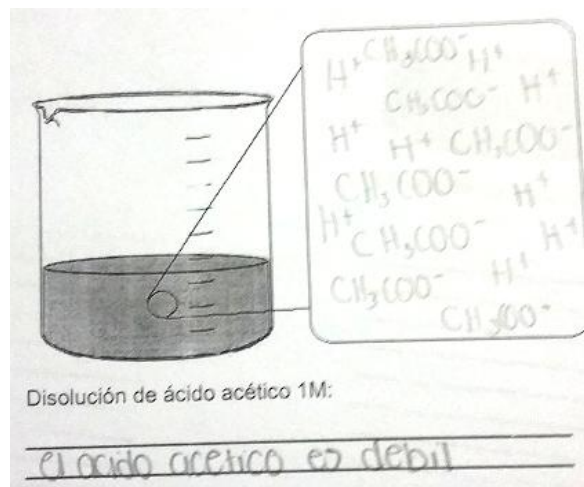 H⁺ CH₃COO⁻ H⁺
CH₃COO⁻ H⁺
H⁺ H⁺ CH₃COO⁻
CH₃COO⁻ H⁺
H⁺ CH₃COO⁻ H⁺
CH₃COO⁻ H⁺
CH₃COO⁻
Disolución de ácido acético 1M:
el acido acetico es debil